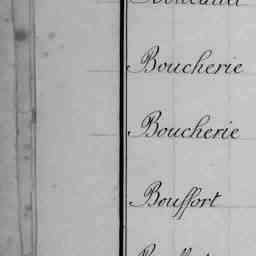 Boucherie
Boucherie
Bouffort